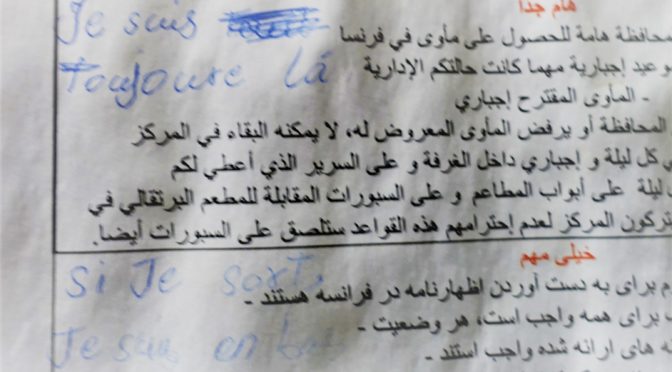 هام جدا
Je suis
محافظة هامة للحصول على مأوى في فرنسا
Toujoure là
عيد إجبارية مهما كانت حالتكم الإدارية
- المأوى المقترح إجباري
المحافظة أو يرفض المأوى المعروض له، لا يمكنه البقاء في المركز
كل ليلة و إجباري داخل الغرفة و على السرير الذي أعطي لكم
ليلة على أبواب المطاعم و على السبورات المقابلة للمطعم البرتقالي في
ركون المركز لعدم إحترامهم هذه القواعد ستلصق على السبورات أيضا.
خیلی مهم
si Je
برای به دست آوردن اظهارنامه در فرانسه هستند -
برای همه واجب است، هر وضعیت -
Je suis en
ه های ارائه شده واجب استند -